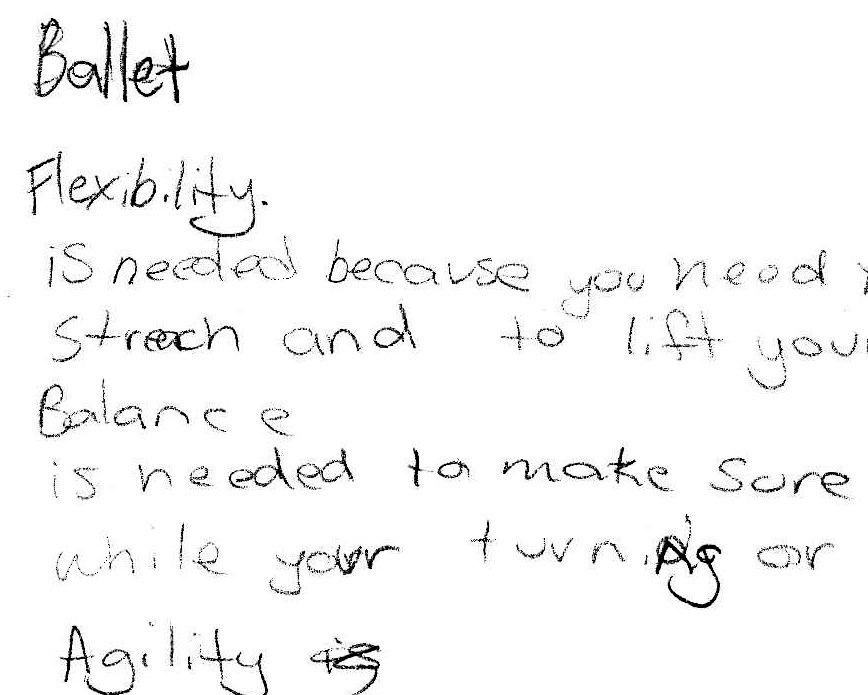 Ballet
Flexibility.
is needed because you need
Strech and to lift your
Balance
is needed to make sure
while your turning or
Agility is